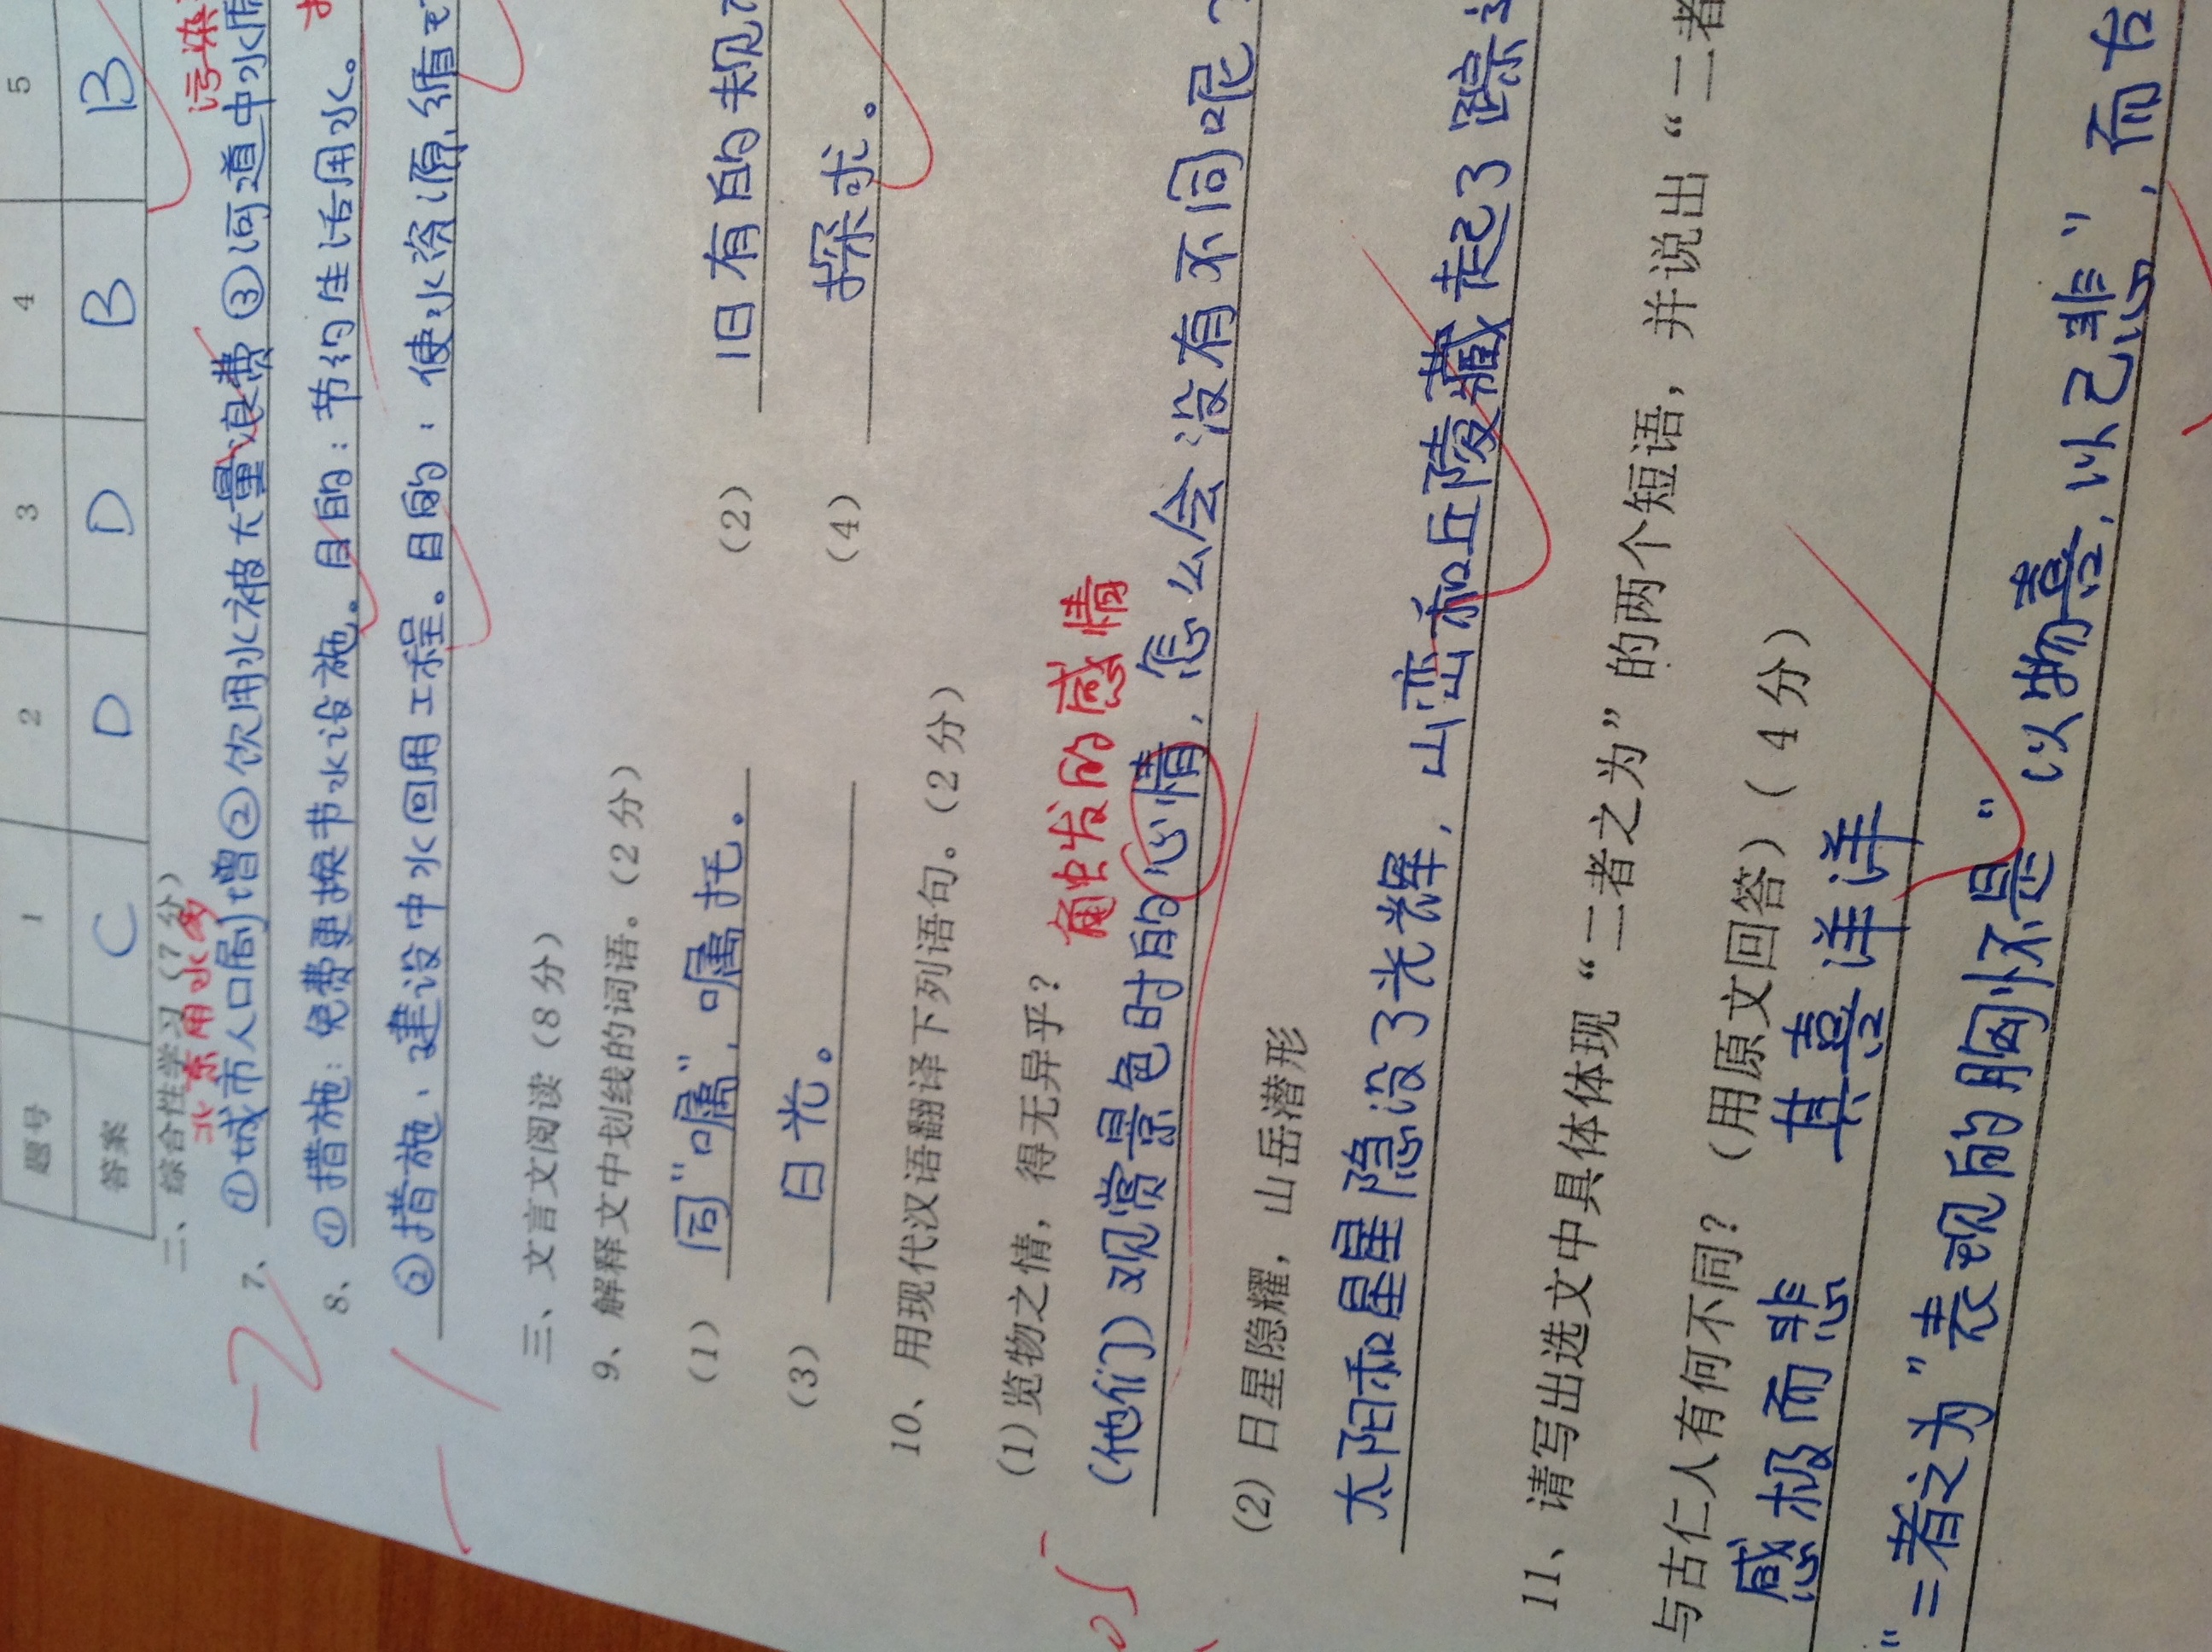 题号 1 2 3 4 5
答案 C D D B B
二、综合性学习（7分）
北京用水多
污染
7、①城市人口剧增②饮用水被大量浪费③河道中水质
8、①措施：免费更换节水设施。目的：节约生活用水。
②措施：建设中水回用工程。目的：使水资源循环
-2
-1
三、文言文阅读（8分）
9、解释文中划线的词语。（2分）
（1） 同“嘱”，嘱托。 （2） 旧有的规
（3） 日光。 （4） 探求。
10、用现代汉语翻译下列语句。（2分）
(1)览物之情，得无异乎？
触发的感情
(他们）观赏景色时的心情，怎么会没有不同呢
(2)日星隐耀，山岳潜形
太阳和星星隐没了光辉，山峦和丘陵藏起了踪
11、请写出选文中具体体现“二者之为”的两个短语，并说出“二者
与古仁人有何不同？（用原文回答）（4分）
感极而悲 其喜洋洋
“二者之为”表现的胸怀是“以物喜，以己悲”，而古